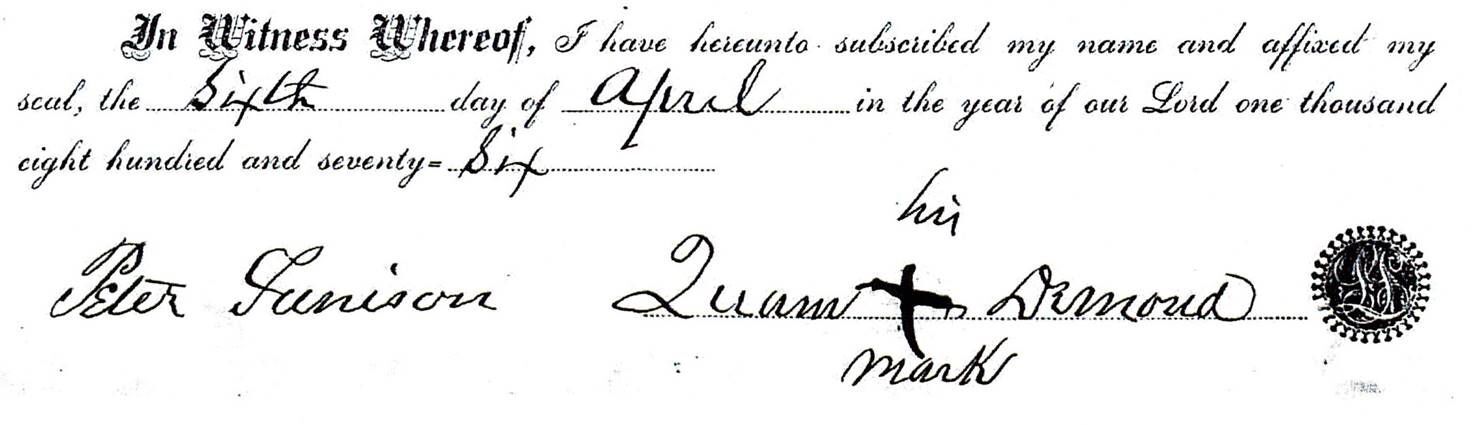 In Witness Whereof, I have hereunto subscribed my name and affixed my
seal, the Sixth day of April in the year of our Lord one thousand
eight hundred and seventy=Six
his
Peter Tunison Quam + Demond
mark